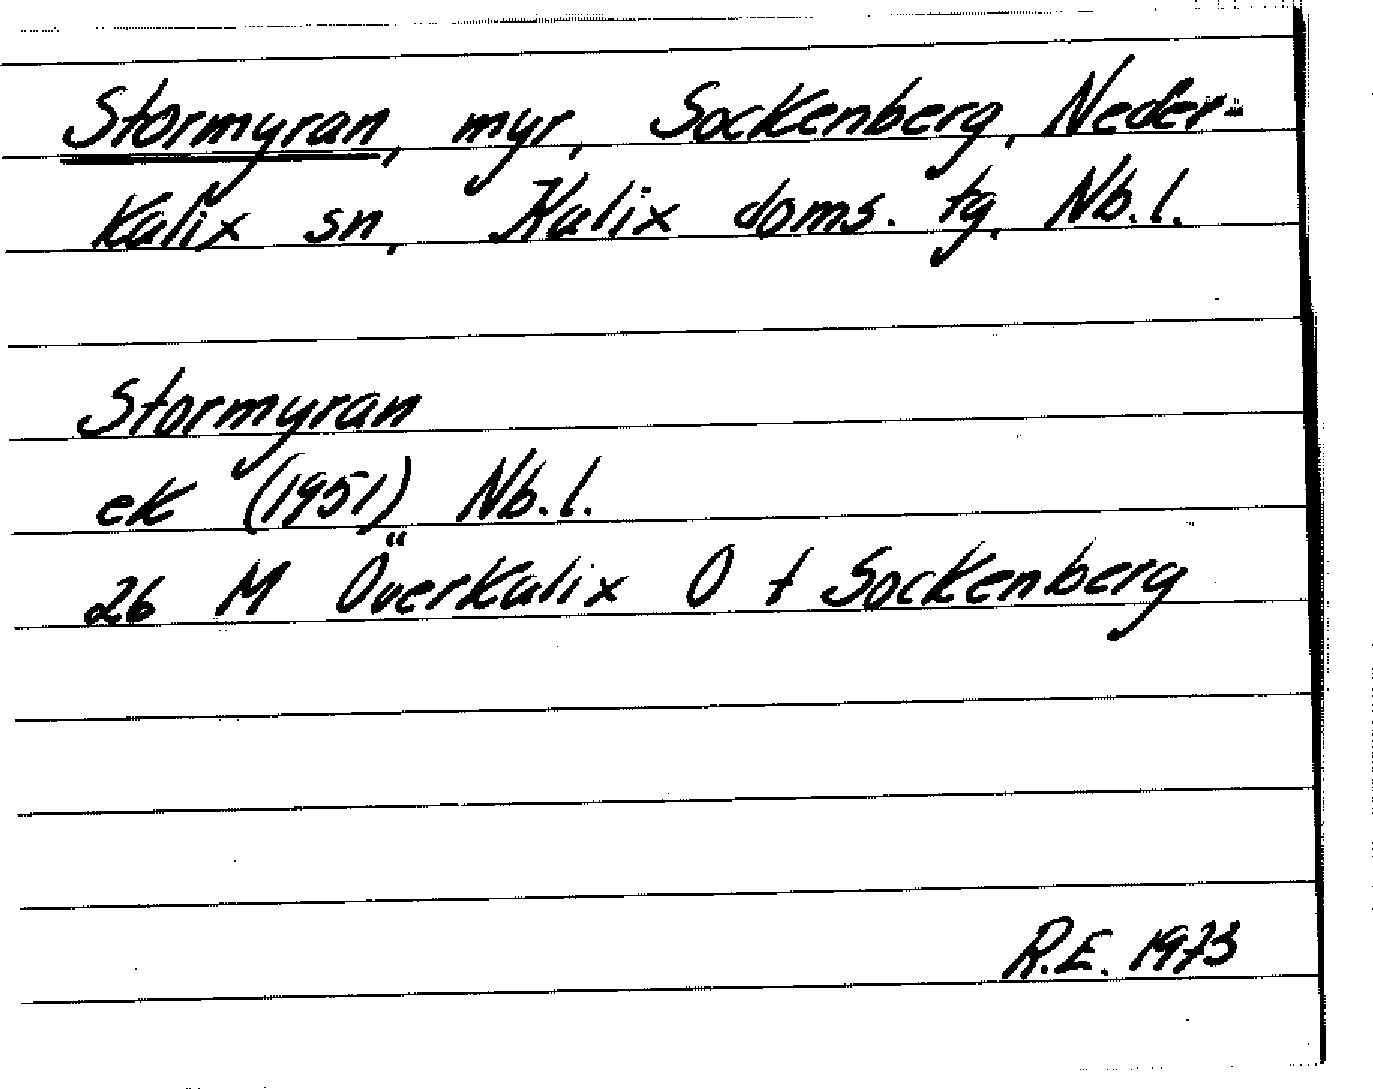 Stormyran, myr, Sockenberg, Neder-
Kalix sn, Kalix doms. tg, Nb.l.
Stormyran
ek (1951) Nb.l.
26 M Överkalix O t Sockenberg
R.E. 1973